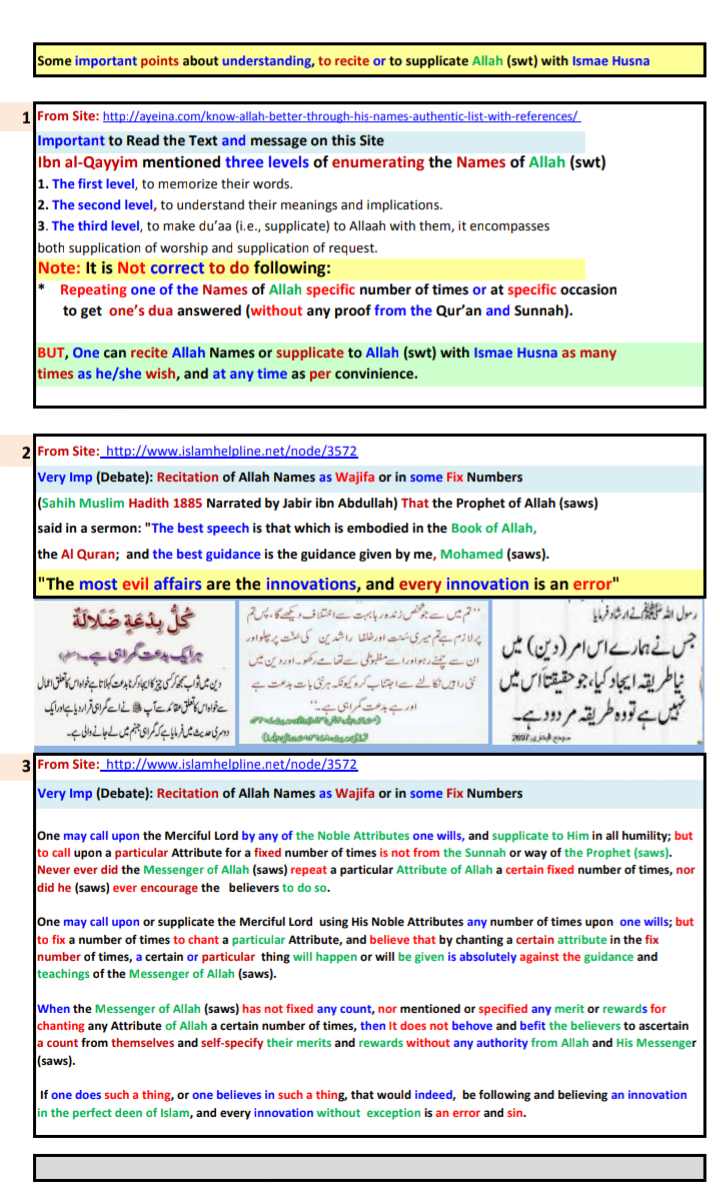 Some important points about understanding, to recite or to supplicate Allah (swt) with Ismae Husna
1
From Site: http://ayeina.com/know-allah-better-through-his-names-authentic-list-with-references/
Important to Read the Text and message on this Site
Ibn al-Qayyim mentioned three levels of enumerating the Names of Allah (swt)
1. The first level, to memorize their words.
2. The second level, to understand their meanings and implications.
3. The third level, to make du'aa (i.e., supplicate) to Allaah with them, it encompasses
both supplication of worship and supplication of request.
Note: It is Not correct to do following:
* Repeating one of the Names of Allah specific number of times or at specific occasion
to get one's dua answered (without any proof from the Qur'an and Sunnah).
BUT, One can recite Allah Names or supplicate to Allah (swt) with Ismae Husna as many
times as he/she wish, and at any time as per convinience.
2
From Site: http://www.islamhelpline.net/node/3572
Very Imp (Debate): Recitation of Allah Names as Wajifa or in some Fix Numbers
(Sahih Muslim Hadith 1885 Narrated by Jabir ibn Abdullah) That the Prophet of Allah (saws)
said in a sermon: "The best speech is that which is embodied in the Book of Allah,
the Al Quran; and the best guidance is the guidance given by me, Mohamed (saws).
"The most evil affairs are the innovations, and every innovation is an error"
رسول اللہ ﷺ نے ارشاد فرمایا
جس نے ہمارے اس امر (دین) میں
نیا طریقہ ایجاد کیا، جو حقیقتاً اس میں
نہیں ہے تو وہ طریقہ مردود ہے۔
"تم میں سے جو شخص زندہ رہا بہت سے اختلاف دیکھے گا، پس تم
پر لازم ہے تم میری سنت اور خلفا راشدین کی سنت پر چلو اور
ان سے چمٹے رہو اور اسے مضبوطی سے تھامے رکھو۔ اور دین میں
نئی راہیں نکالنے سے اجتناب کرو کیونکہ ہر نئی بات بدعت ہے
اور ہر بدعت گمراہی ہے۔"
كُلُّ بِدْعَةٍ ضَلَالَةٌ
ہر ایک بدعت گمراہی ہے۔
دین میں ثواب سمجھ کر کسی چیز کا ایجاد کرنا بدعت کہلاتا ہے خواہ اس کا تعلق اعمال
سے خواہ اس کا تعلق عقائد سے آپ ﷺ نے اسے گمراہی قرار دیا ہے اور ایک
دوسری حدیث میں فرمایا ہے کہ گمراہی جہنم میں لے جانے والی ہے۔
3
From Site: http://www.islamhelpline.net/node/3572
Very Imp (Debate): Recitation of Allah Names as Wajifa or in some Fix Numbers
One may call upon the Merciful Lord by any of the Noble Attributes one wills, and supplicate to Him in all humility; but
to call upon a particular Attribute for a fixed number of times is not from the Sunnah or way of the Prophet (saws).
Never ever did the Messenger of Allah (saws) repeat a particular Attribute of Allah a certain fixed number of times, nor
did he (saws) ever encourage the believers to do so.
One may call upon or supplicate the Merciful Lord using His Noble Attributes any number of times upon one wills; but
to fix a number of times to chant a particular Attribute, and believe that by chanting a certain attribute in the fix
number of times, a certain or particular thing will happen or will be given is absolutely against the guidance and
teachings of the Messenger of Allah (saws).
When the Messenger of Allah (saws) has not fixed any count, nor mentioned or specified any merit or rewards for
chanting any Attribute of Allah a certain number of times, then It does not behove and befit the believers to ascertain
a count from themselves and self-specify their merits and rewards without any authority from Allah and His Messenger
(saws).
If one does such a thing, or one believes in such a thing, that would indeed, be following and believing an innovation
in the perfect deen of Islam, and every innovation without exception is an error and sin.